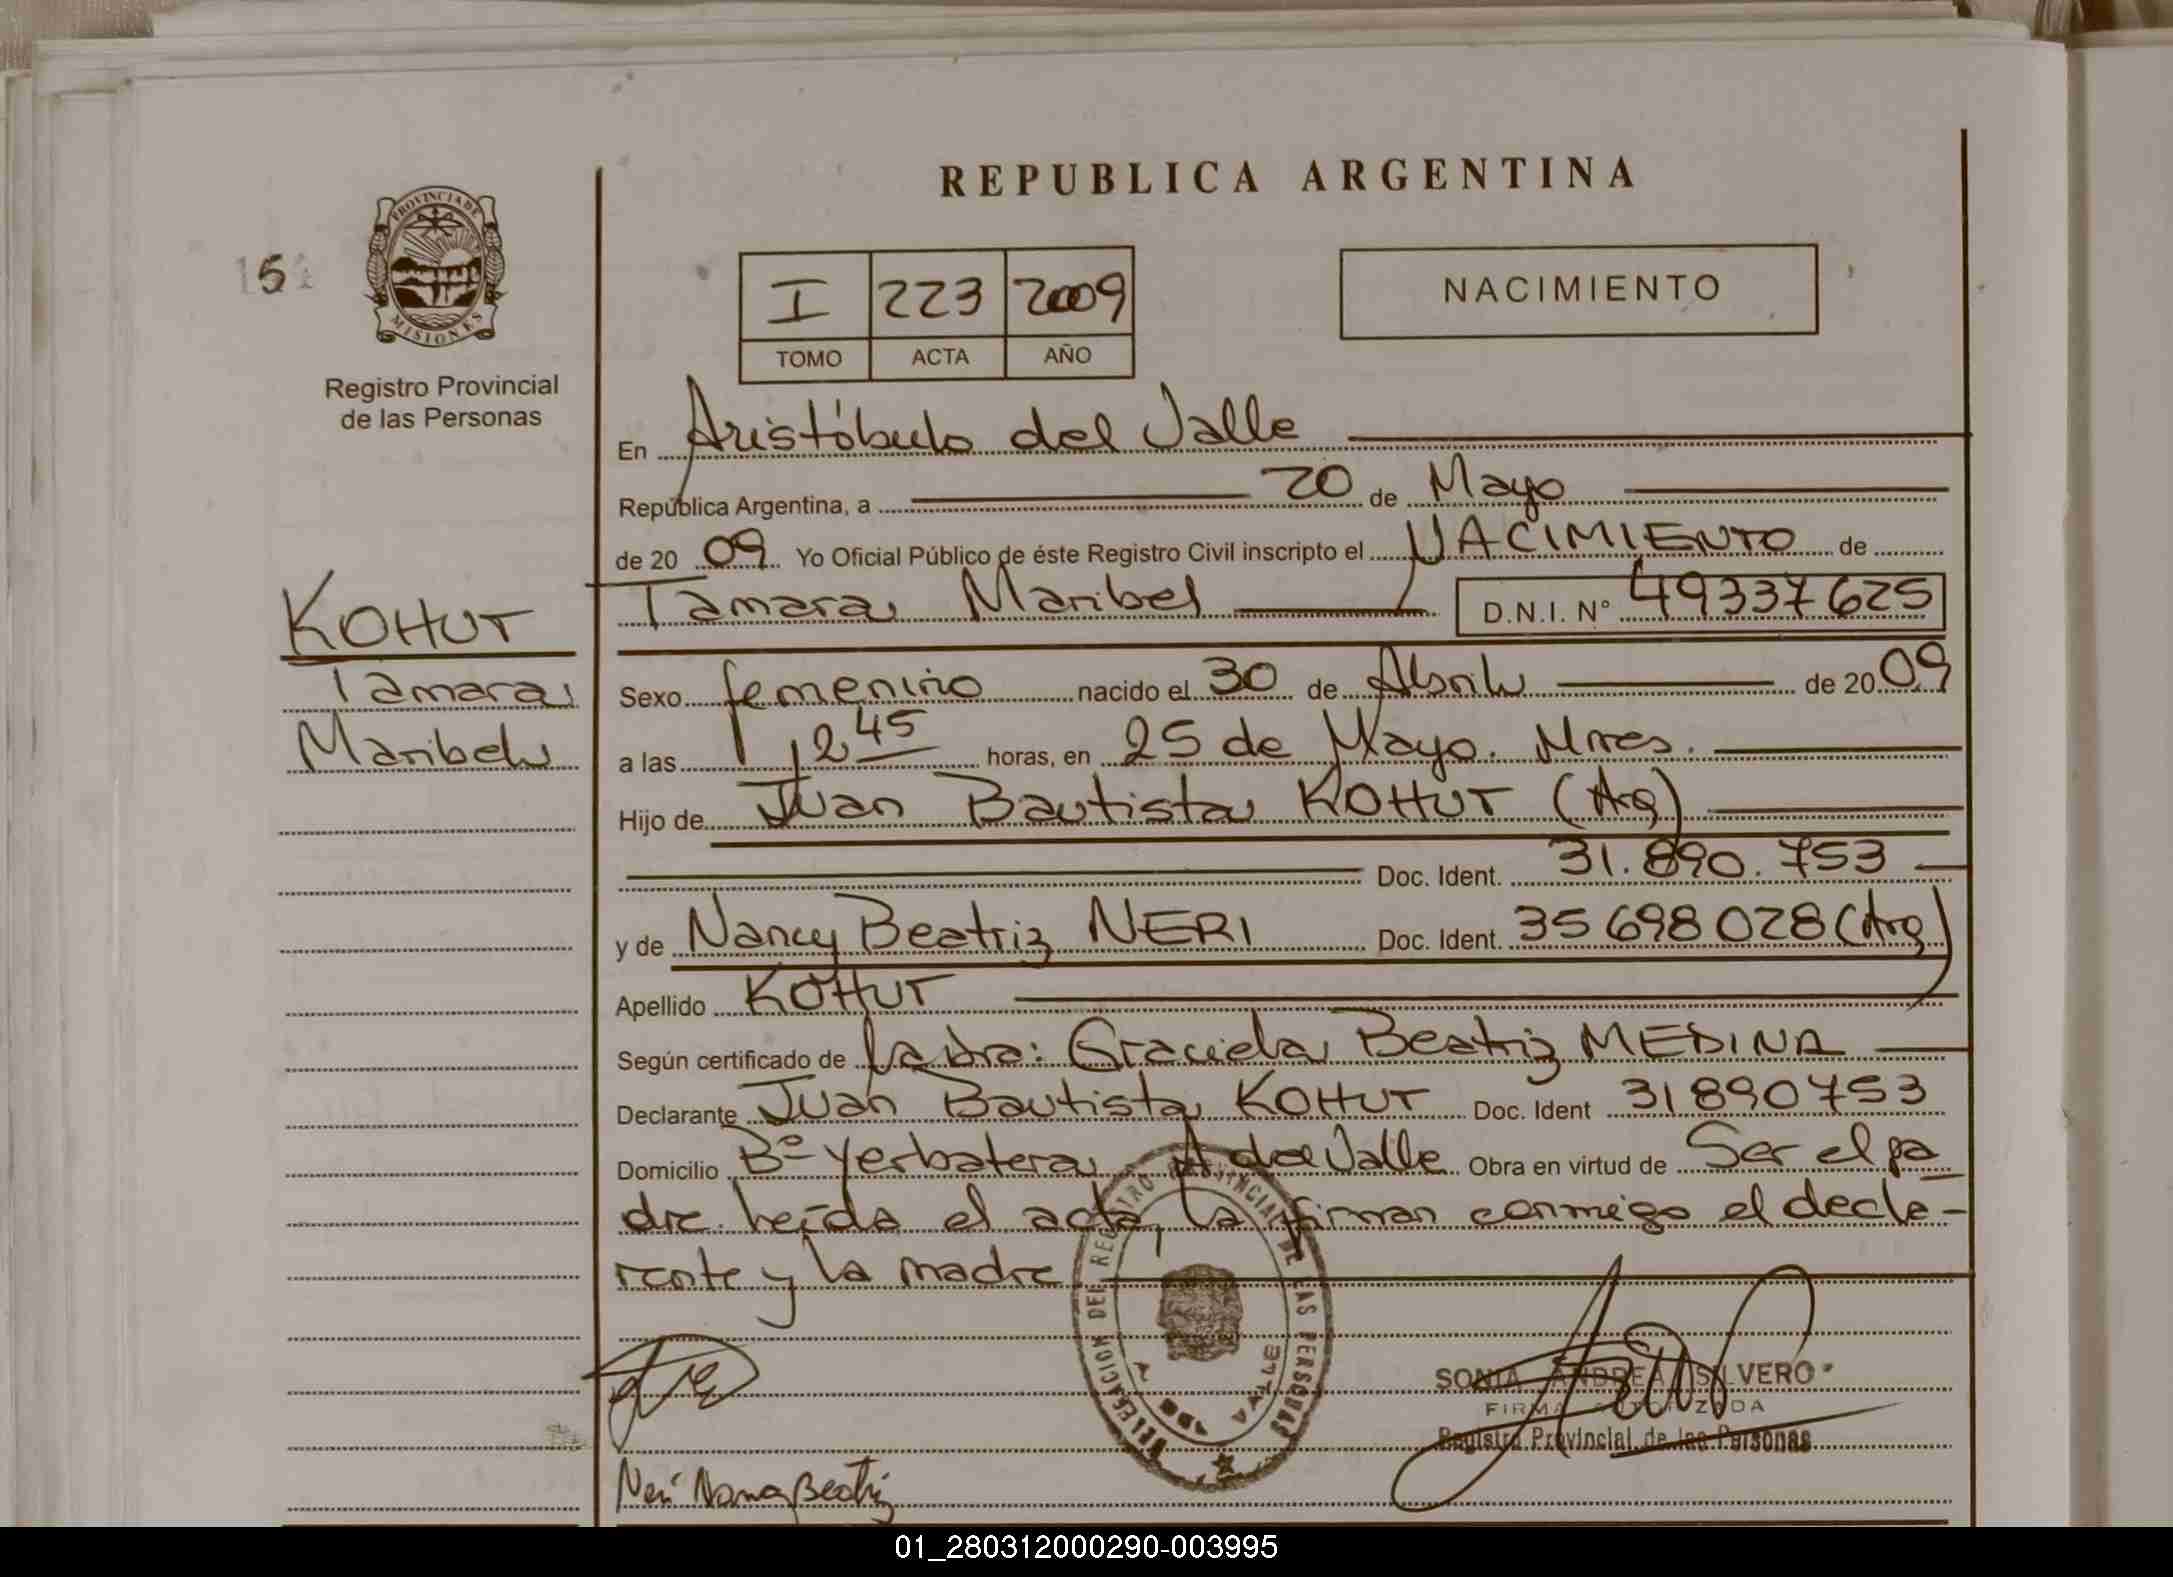 REPUBLICA ARGENTINA
PROVINCIA DE
MISIONES
Registro Provincial
de las Personas
I 223 2009
TOMO ACTA AÑO
NACIMIENTO
KOHUT
Tamara
Maribel
En Aristóbulo del Valle
República Argentina, a 20 de Mayo
de 20 09 Yo Oficial Público de éste Registro Civil inscripto el NACIMIENTO de
Tamara Maribel D.N.I. N° 49337625
Sexo femenino nacido el 30 de Abril de 20 09
a las 12 45 horas, en 25 de Mayo. Mnes.
Hijo de Juan Bautista KOHUT (Arg)
Doc. Ident. 31.890.753
y de Nancy Beatriz NERI Doc. Ident. 35698028 (Arg)
Apellido KOHUT
Según certificado de la dra: Graciela Beatriz MEDINA
Declarante Juan Bautista KOHUT Doc. Ident 31890753
Domicilio Bº Yerbatera A del Valle Obra en virtud de Ser el pa
dre. leída el acta, la firman conmigo el decla-
rante y la madre
DELEGACION DEL REGISTRO PROVINCIAL DE LAS PERSONAS
A. DEL VALLE
SONIA ANDREA SILVERO
FIRMA AUTORIZADA
Registro Provincial de las Personas
Neri Nancy Beatriz
01_280312000290-003995